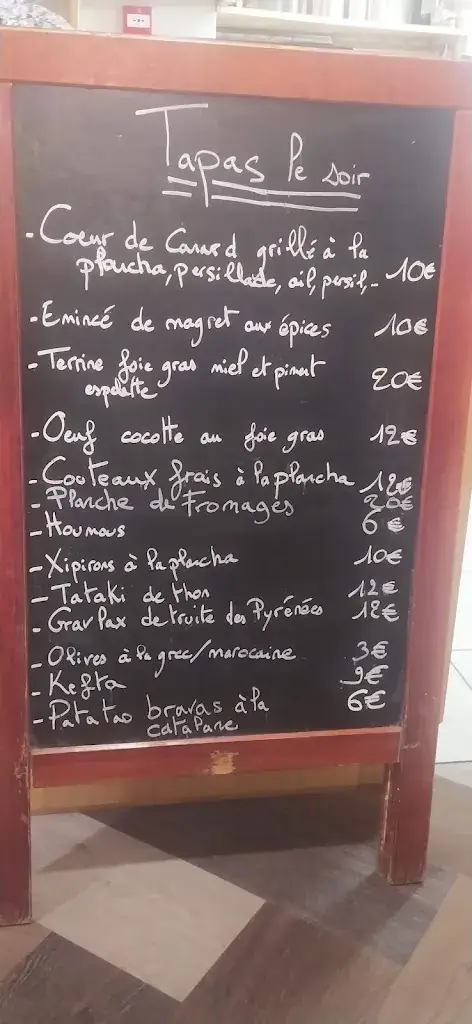 Tapas le soir
- Coeur de Canard grillé à la
plancha, persillade, ail, persil,- 10€
- Emincé de magret aux épices 10€
- Terrine foie gras miel et piment
espelette 20€
- Oeuf cocotte au foie gras 12€
- Couteaux frais à la plancha 12€
- Planche de Fromages 20€
- Houmous 6€
- Xipirons à la plancha 10€
- Tataki de thon 12€
- Gravlax de truite des Pyrénées 12€
- Olives à la grec/marocaine 3€
- Kefta 9€
- Patatas bravas à la 6€
catalane